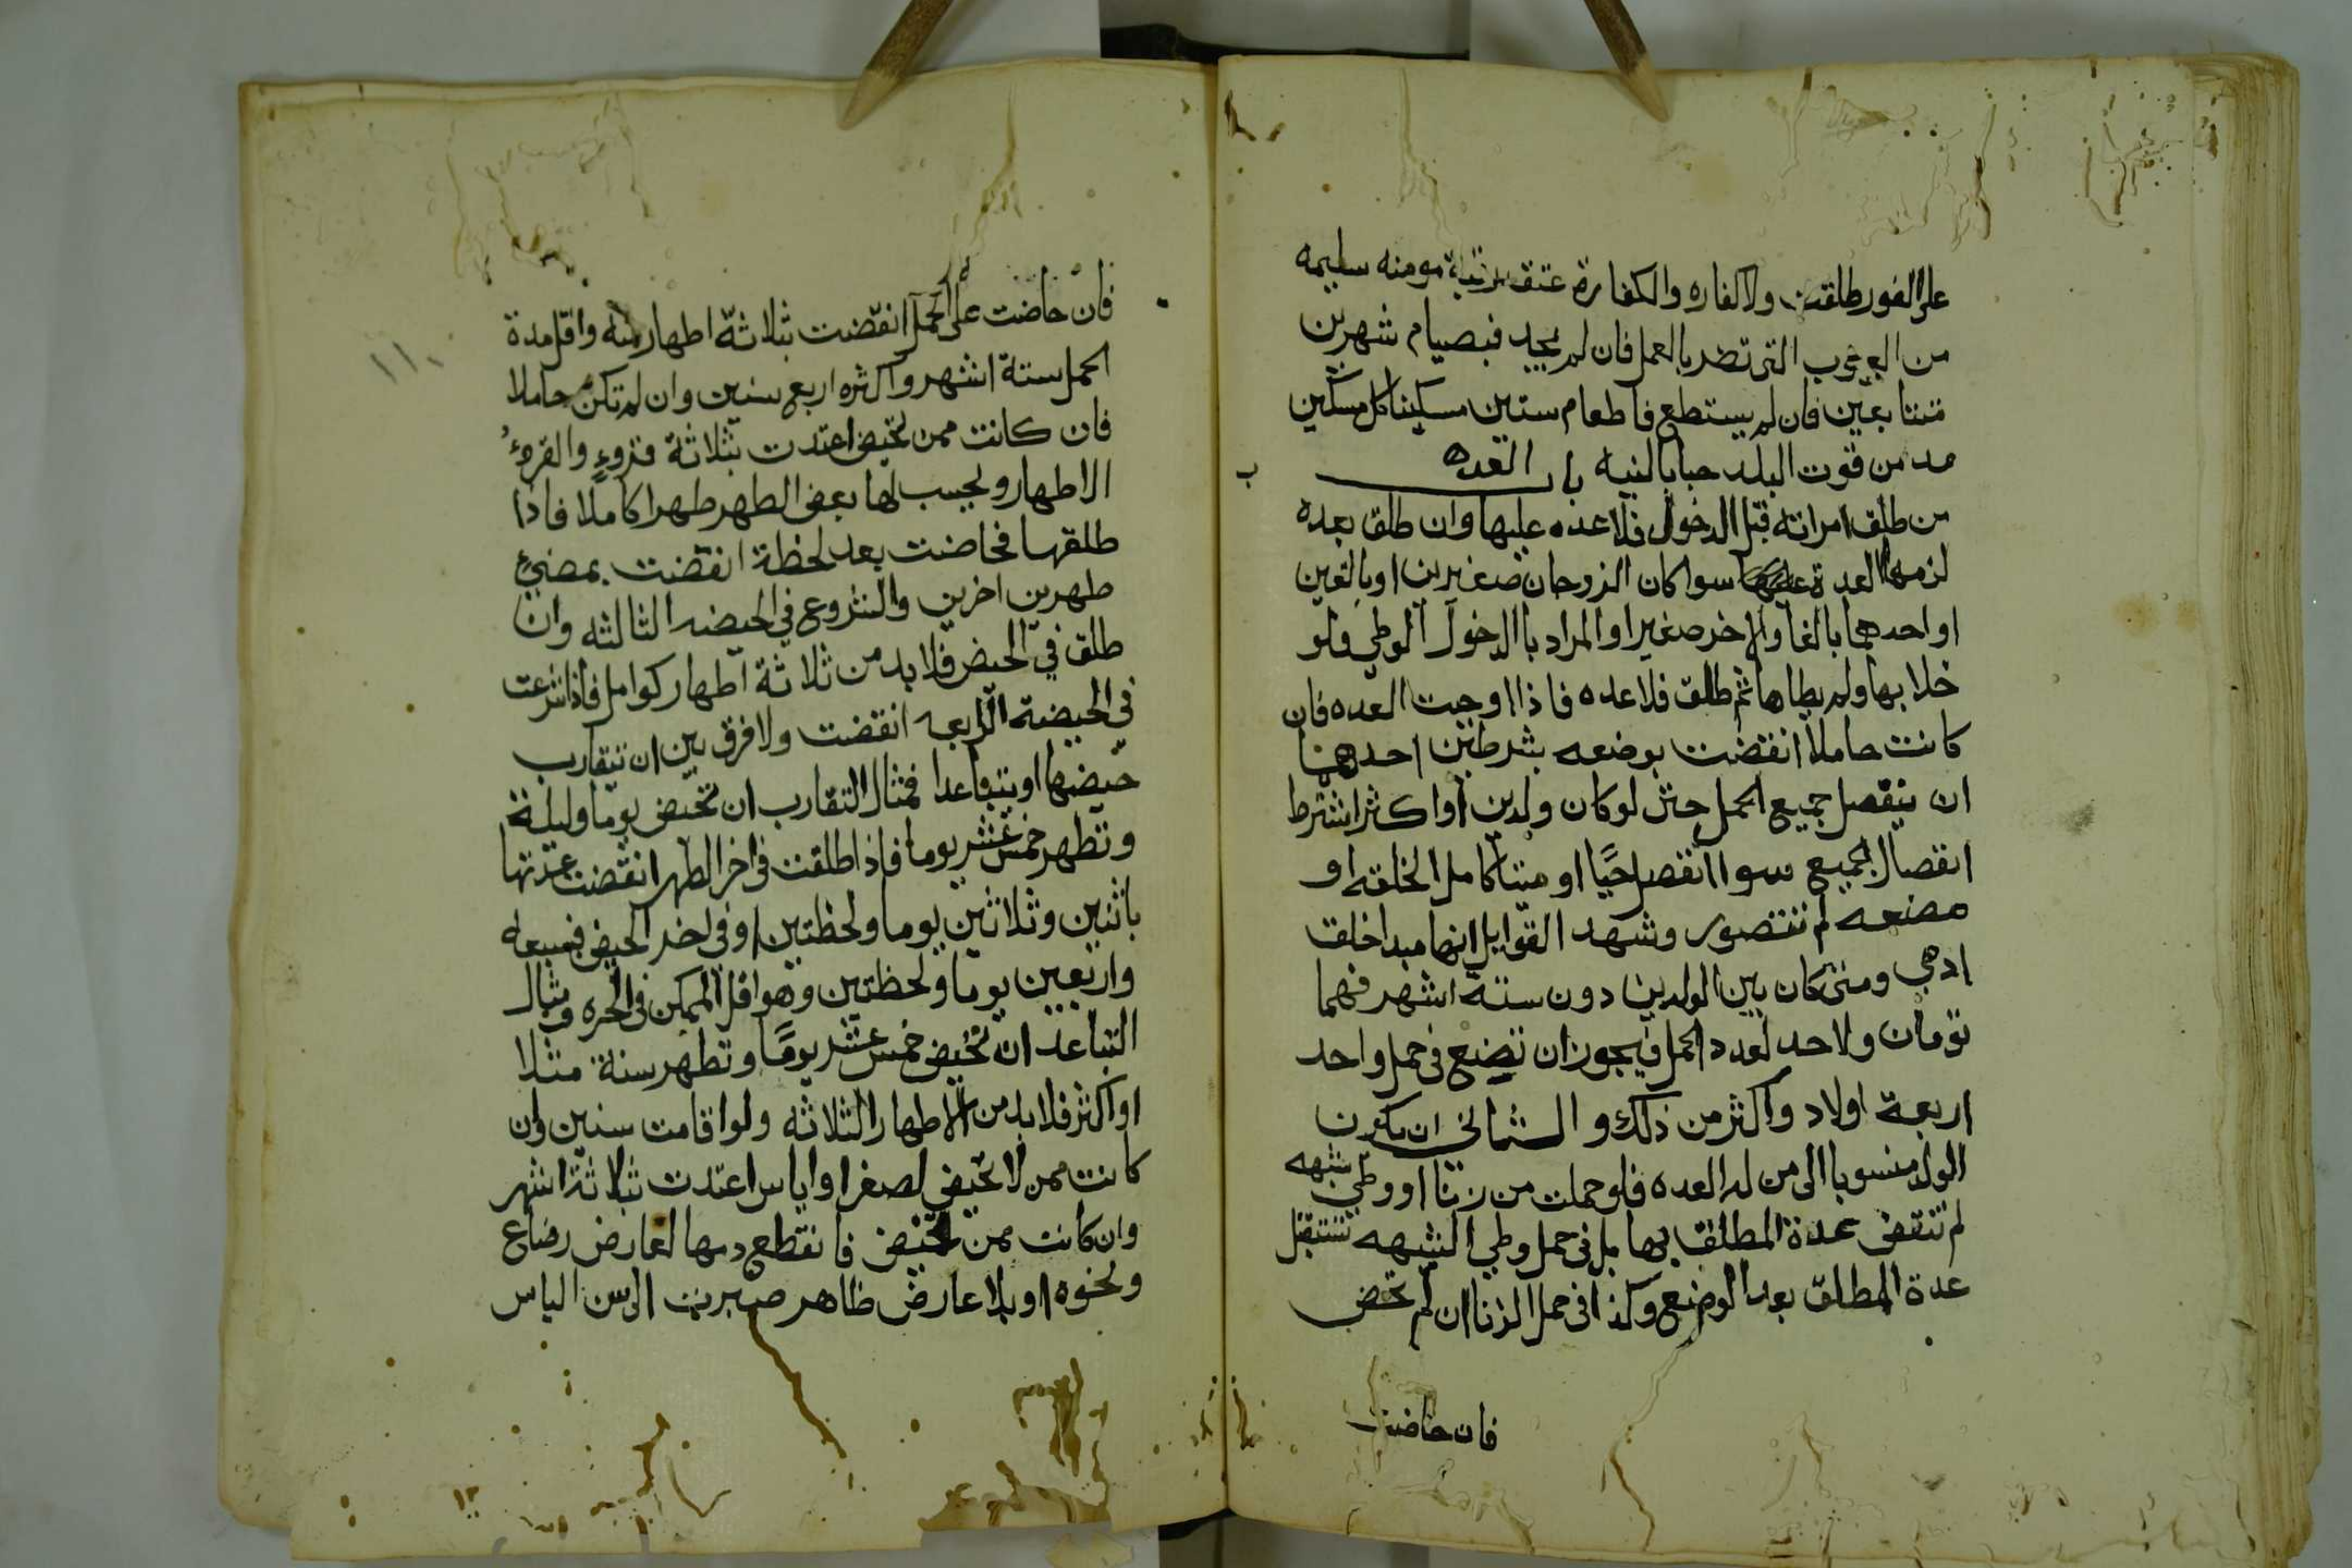 على الفور طلقت ولا كفاره والكفارة عتق رقبة مومنه سليمه
من العيوب التى تضر بالعمل فان لم يجد فصيام شهرين
متتابعين فان لم يستطع فاطعام ستين مسكينا كل مسكين
مد من قوت البلد حبا بالنيه باب العده
ب
من طلق امراته قبل الدخول فلا عده عليها وان طلق بعده
لزمها العدة سوا كان الزوجان صغيرين او بالغين
او احدهما بالغا والاخر صغيرا والمراد بالدخول الوطي فلو
خلا بها ولم يطاها ثم طلق فلا عده فاذا اوجبت العده فان
كانت حاملا انقضت بوضعه بشرطين احدهما
ان ينفصل جميع الحمل حتى لو كان ولدين او اكثر اشترط
انفصال الجميع سوا انفصل حيًا او ميتا كامل الخلقه او
مضغه لم تتصور وشهد القوابل انها مبدا خلق
ادمي ومتى كان بين الولدين دون ستة اشهر فهما
توءمان ولا حد لعدد الحمل فيجوز ان تضع فى حمل واحد
اربعة اولاد واكثر من ذلك والثاني ان يكون
الولد منسوبا الى من له العده فلو حملت من زنا او وطي شبهه
لم تنقض عدة المطلق بها بل فى حمل وطي الشبهه تستقبل
عدة المطلق بعد الوضع وكذا فى حمل الزنا ان لم تحض
فان حاضت
١١٠
فان حاضت على الحمل انقضت بثلاثة اطهار منه واقل مدة
الحمل ستة اشهر واكثره اربع سنين وان لم تكن حاملا
فان كانت ممن تحيض اعتدت بثلاثة قروءٍ والقروءُ
الاطهار ويحسب لها بعض الطهر طهرا كاملا فاذا
طلقها فحاضت بعد لحظة انقضت بمضيء
طهرين اخرين والشروع في الحيضه الثالثه وان
طلق في الحيض فلا بد من ثلاثة اطهار كوامل فاذا شرعت
في الحيضة الرابعه انقضت ولا فرق بين ان يتقارب
حيضها او يتباعدا فمثال التقارب ان تحيض يوما وليلة
وتطهر خمس عشر يوما فاذا طلقت فى اخر الطهر انقضت عدتها
باثنين وثلاثين يوما ولحظتين او فى اخر الحيض فبسبعه
واربعين يوما ولحظتين وهو اقل الممكن فى الحره ومثال
التباعد ان تحيض خمس عشر يومًا وتطهر سنة مثلا
او اكثر فلا بد من الاطهار الثلاثه ولو اقامت سنين وان
كانت ممن لا تحيض لصغر او اياس اعتدت بثلاثة اشهر
وان كانت ممن تحيض فانقطع دمها لعارض رضاع
ونحوه او بلا عارض ظاهر صبرت الى سن الياس